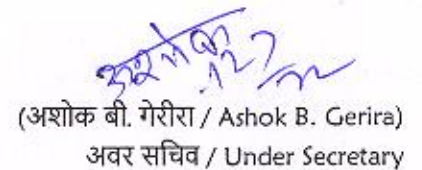 (अशोक बी. गेरीरा / Ashok B. Gerira)
अवर सचिव / Under Secretary